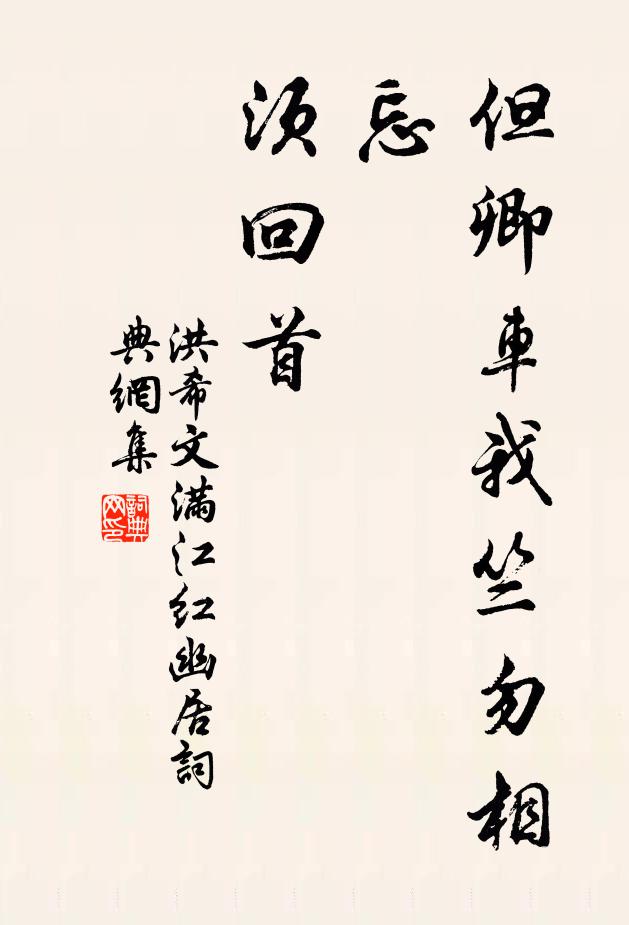 但卿車我竺勿相
忘
須回首
洪希文滿江紅幽居詞
典網集
詞典網印